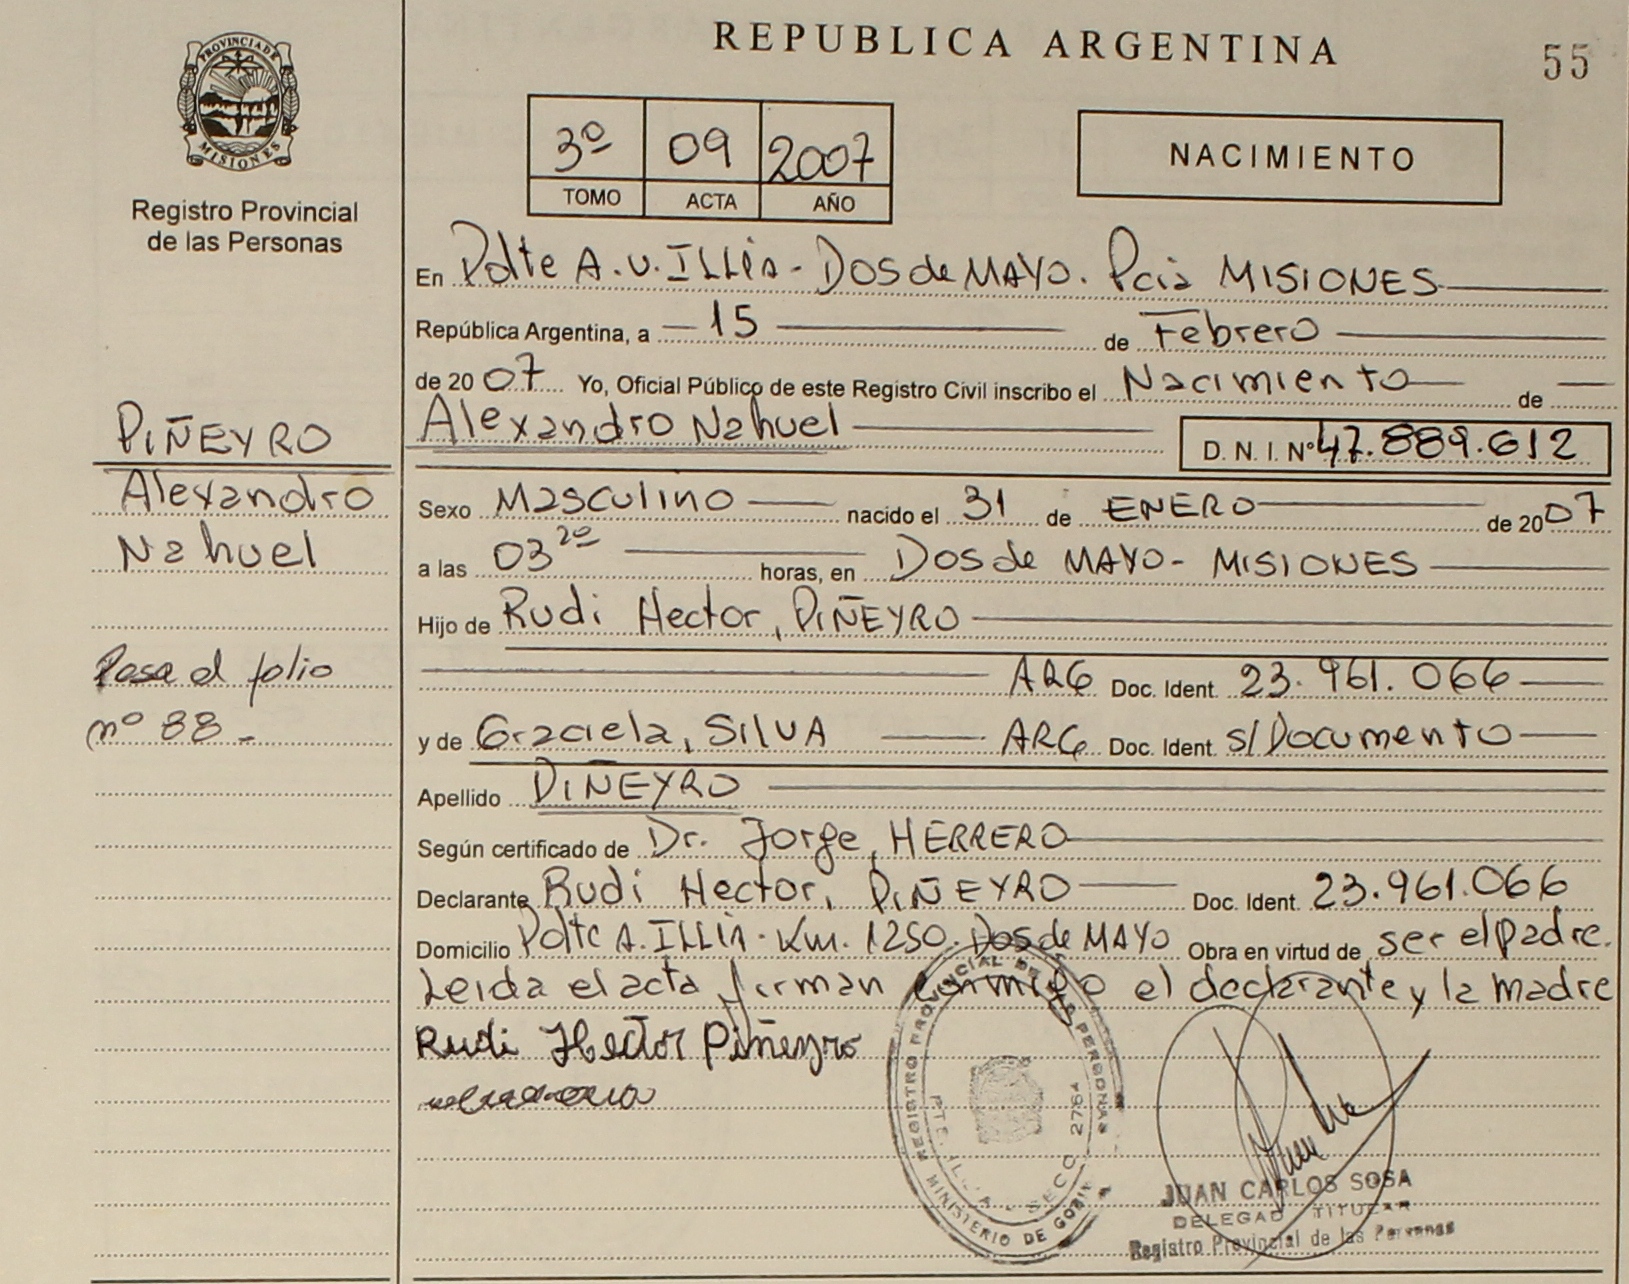 REPUBLICA ARGENTINA
55
PROVINCIA DE MISIONES
Registro Provincial
de las Personas
3º 09 2007
TOMO ACTA AÑO
NACIMIENTO
En Pdte A.U. ILLIA - DOS de MAYO. Pcia MISIONES
República Argentina, a 15 de Febrero
de 2007 Yo, Oficial Público de este Registro Civil inscribo el Nacimiento de
Alexandro Nahuel D.N.I. Nº 47.889.612
PIÑEYRO
Alexandro
Nahuel
Pasa al folio
nº 88 -
Sexo Masculino nacido el 31 de ENERO de 2007
a las 03 20 horas, en DOS de MAYO - MISIONES
Hijo de Rudi Hector, PIÑEYRO
ARG Doc. Ident. 23.961.066
y de Graciela, SILVA ARG Doc. Ident. s/Documento
Apellido PIÑEYRO
Según certificado de Dr. Jorge, HERRERO
Declarante Rudi Hector, PIÑEYRO Doc. Ident. 23.961.066
Domicilio Pdte A. ILLIA - Km. 1250. Dos de MAYO Obra en virtud de ser el padre.
Leida el acta firman conmigo el declarante y la madre
Rudi Hector Piñeyro
REGISTRO PROVINCIAL DE LAS PERSONAS
PTE. ILLIA - SECC. 2784
MINISTERIO DE
JUAN CARLOS SOSA
DELEGADO TITULAR
Registro Provincial de las Personas